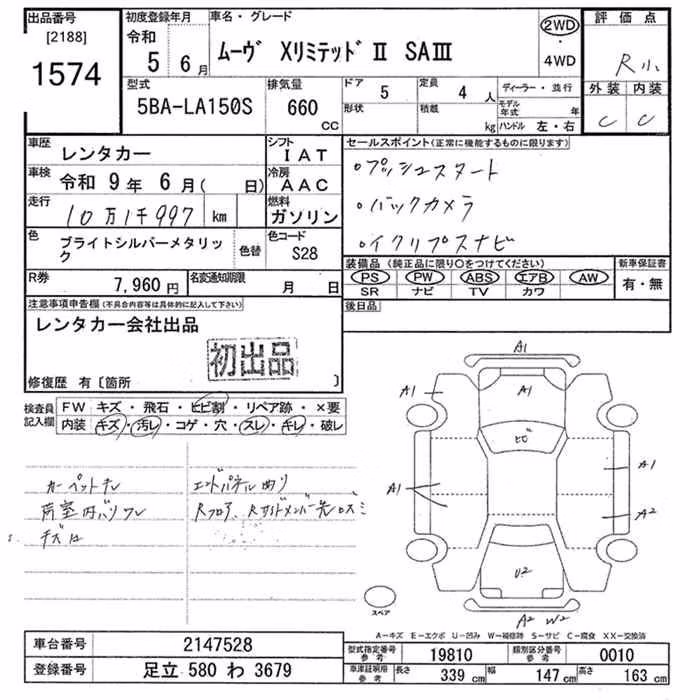 出品番号
[2188]
1574
初度登録年月
令和
5 6月
車名・グレード
ムーヴ XリミテッドⅡ SAⅢ
2WD
・
4WD
評価点
R小
外装 内装
C C
型式
5BA-LA150S
排気量
660
CC
ドア 5
形状
定員 4 人
積載 kg
ディーラー・並行
モデル年式 年
ハンドル 左・右
車歴
レンタカー
シフト
IAT
車検
令和 9年 6月( 日)
冷房
AAC
走行
10万1千997 km
燃料
ガソリン
色
ブライトシルバーメタリック
色替
色コード
S28
R券
7,960円
名変通知期限
月 日
セールスポイント(正常に機能するものに限ります)
○プッシュスタート
○バックカメラ
○イクリプスナビ
装備品(純正品に限り○をつけてください)
PS PW ABS エアB AW
SR ナビ TV カワ
新車保証書
有・無
後日品
注意事項申告欄(不具合内容等は具体的に記入して下さい)
レンタカー会社出品
初出品
修復歴 有〔箇所 〕
検査員記入欄
FW キズ・飛石・ヒビ割・リペア跡・×要
内装 キズ・汚レ・コゲ・穴・スレ・キレ・破レ
カーペットキレ
荷室内ハリワレ
キズ凹
エンドパネル曲り
Rフロア、Rサイドメンバー先ロズミ
A1
A1
A1
ヒビ
A1
A1
A2
U2
A2 W2
スペア
A－キズ E－エクボ U－凹み W－補修跡 S－サビ C－腐食 XX－交換済
車台番号
2147528
登録番号
足立 580 わ 3679
型式指定番号
参考
19810
類別区分番号
参考
0010
車庫証明用
参考
長さ 339 cm 幅 147 cm 高さ 163 cm